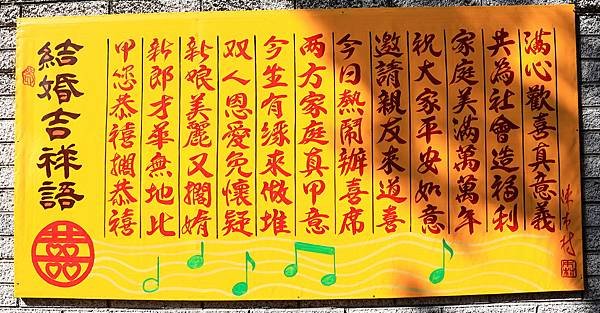 結婚吉祥語
甲您恭禧擱恭禧
新郎才華無地比
新娘美麗又擱媠
双人恩愛免懷疑
今生有緣來做堆
两方家庭真甲意
今日熱鬧辦喜席
邀請親友來道喜
祝大家平安如意
家庭美滿萬萬年
共為社會造福利
滿心歡喜真意義
囍